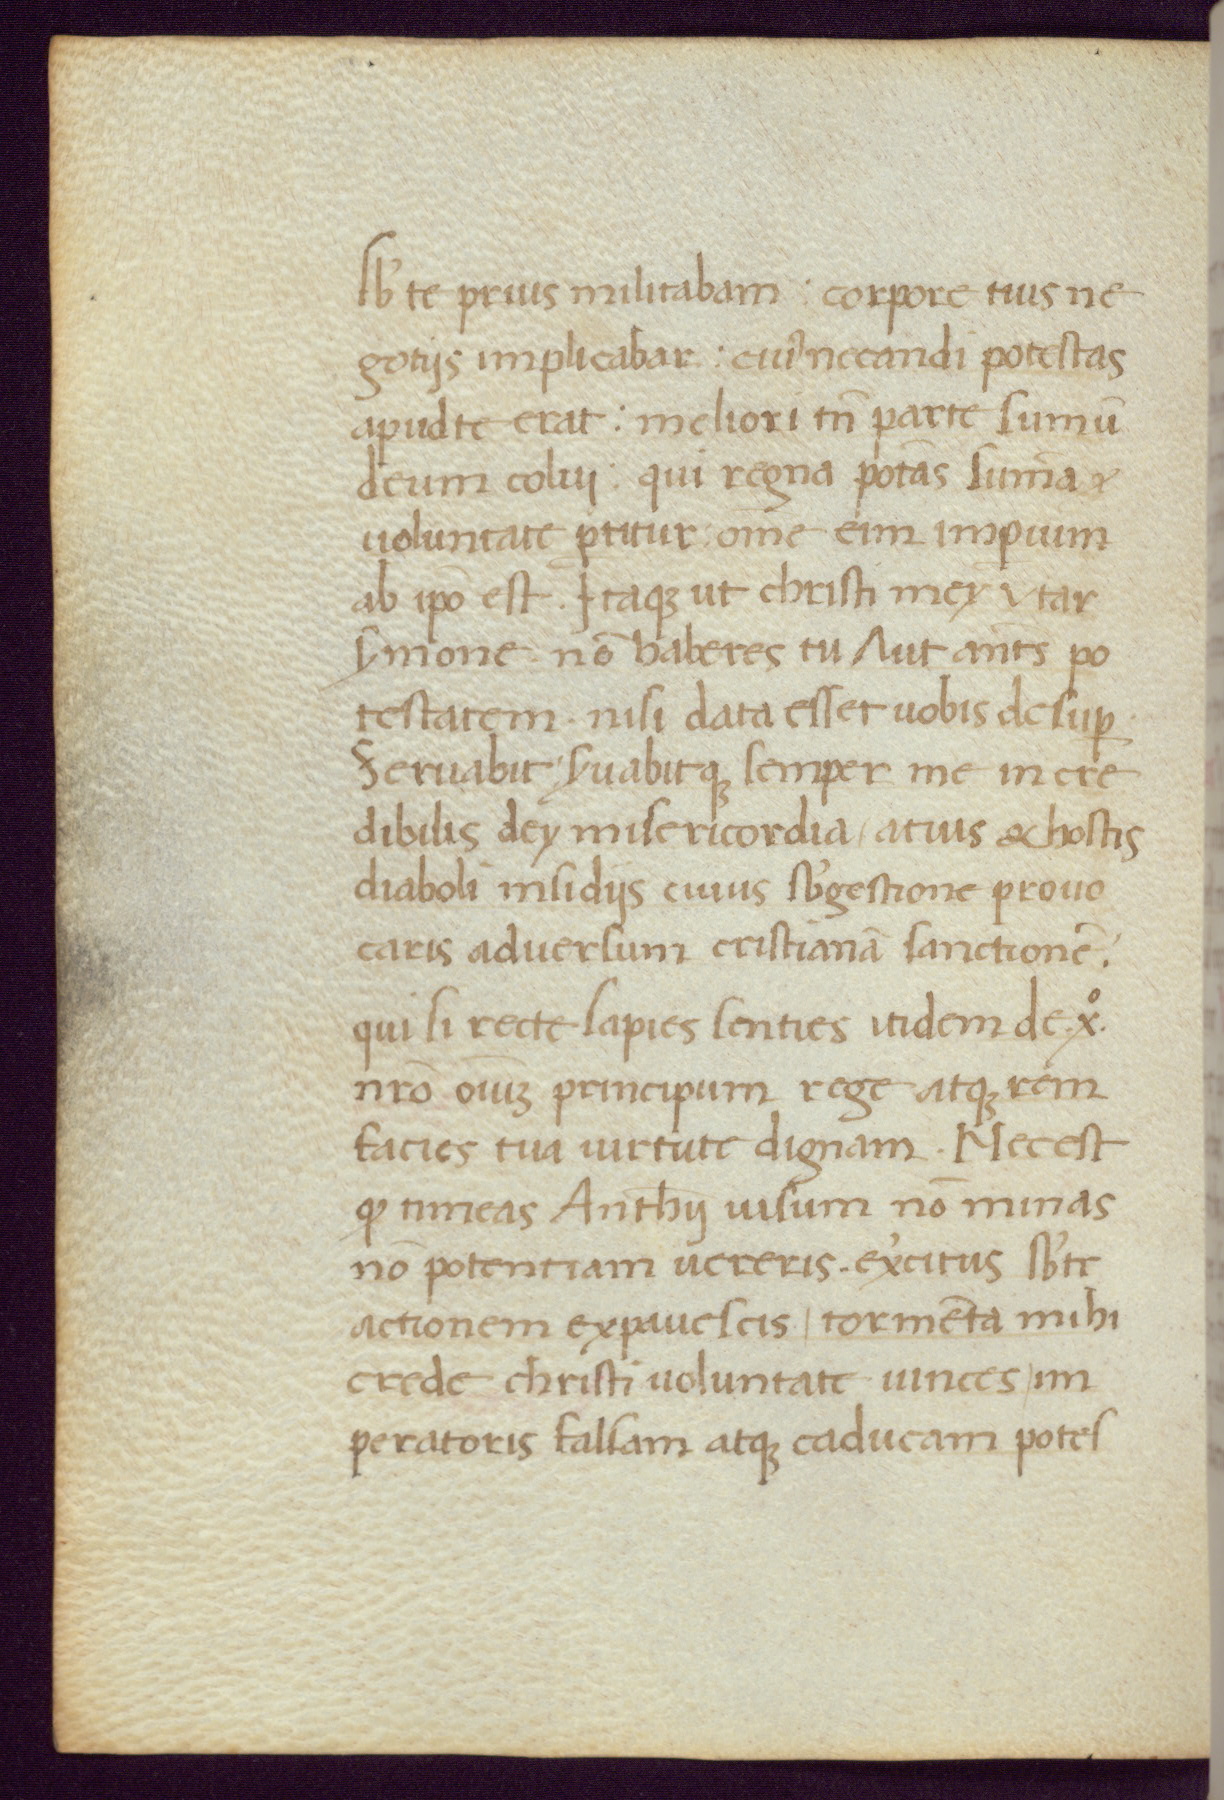 sb' te prius militabam : corpore tuis ne
gotijs implicabar : cui' necandi potestas
apud te erat : meliori tn̄ parte sumū
deum colui : qui regna potās sum̄a &
uoluntate ꝑtitur om̄e eim impium
ab ip̄o est . Itaqꝫ ut christi mey utar
symone . nō haberes tu Aut an̄ts po
testatem . nisi data esset uobis desuꝑ .
Seruabit / syuabitqꝫ semper me incre
dibilis dey misericordia / atuis & hostis
diaboli insidijs cuius sb'gestione prouo
caris aduersum cristianā sanctionē .
qui si recte sapies senties itidem de . xͦ .
nr̄o oīuꝫ principum rege atqꝫ rem
facies tua uirtute dignam . Nec est
ꝙ timeas Anthij uisum nō minas
nō potentiam uereris . exˀcitus sb'tr
actionem expauescis / tormēta mihi
crede christi uoluntate uinces / im
peratoris falsam atqꝫ caducam potes